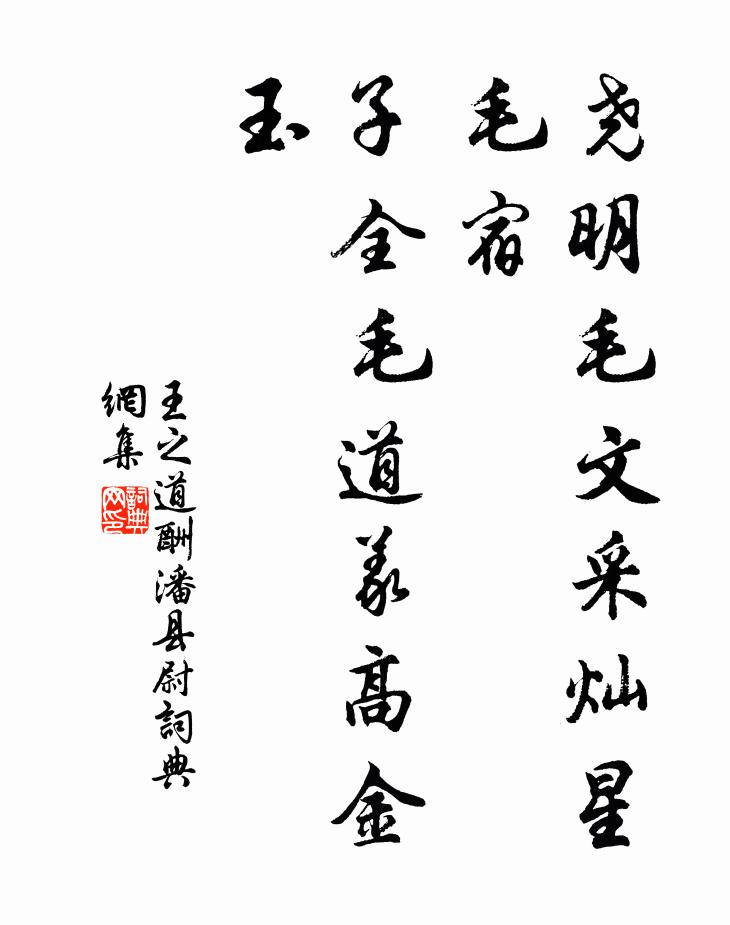 尧明毛文采灿星
毛宿
子全毛道义高金
玉
王之道酬潘县尉詞典
網集
詞典网印